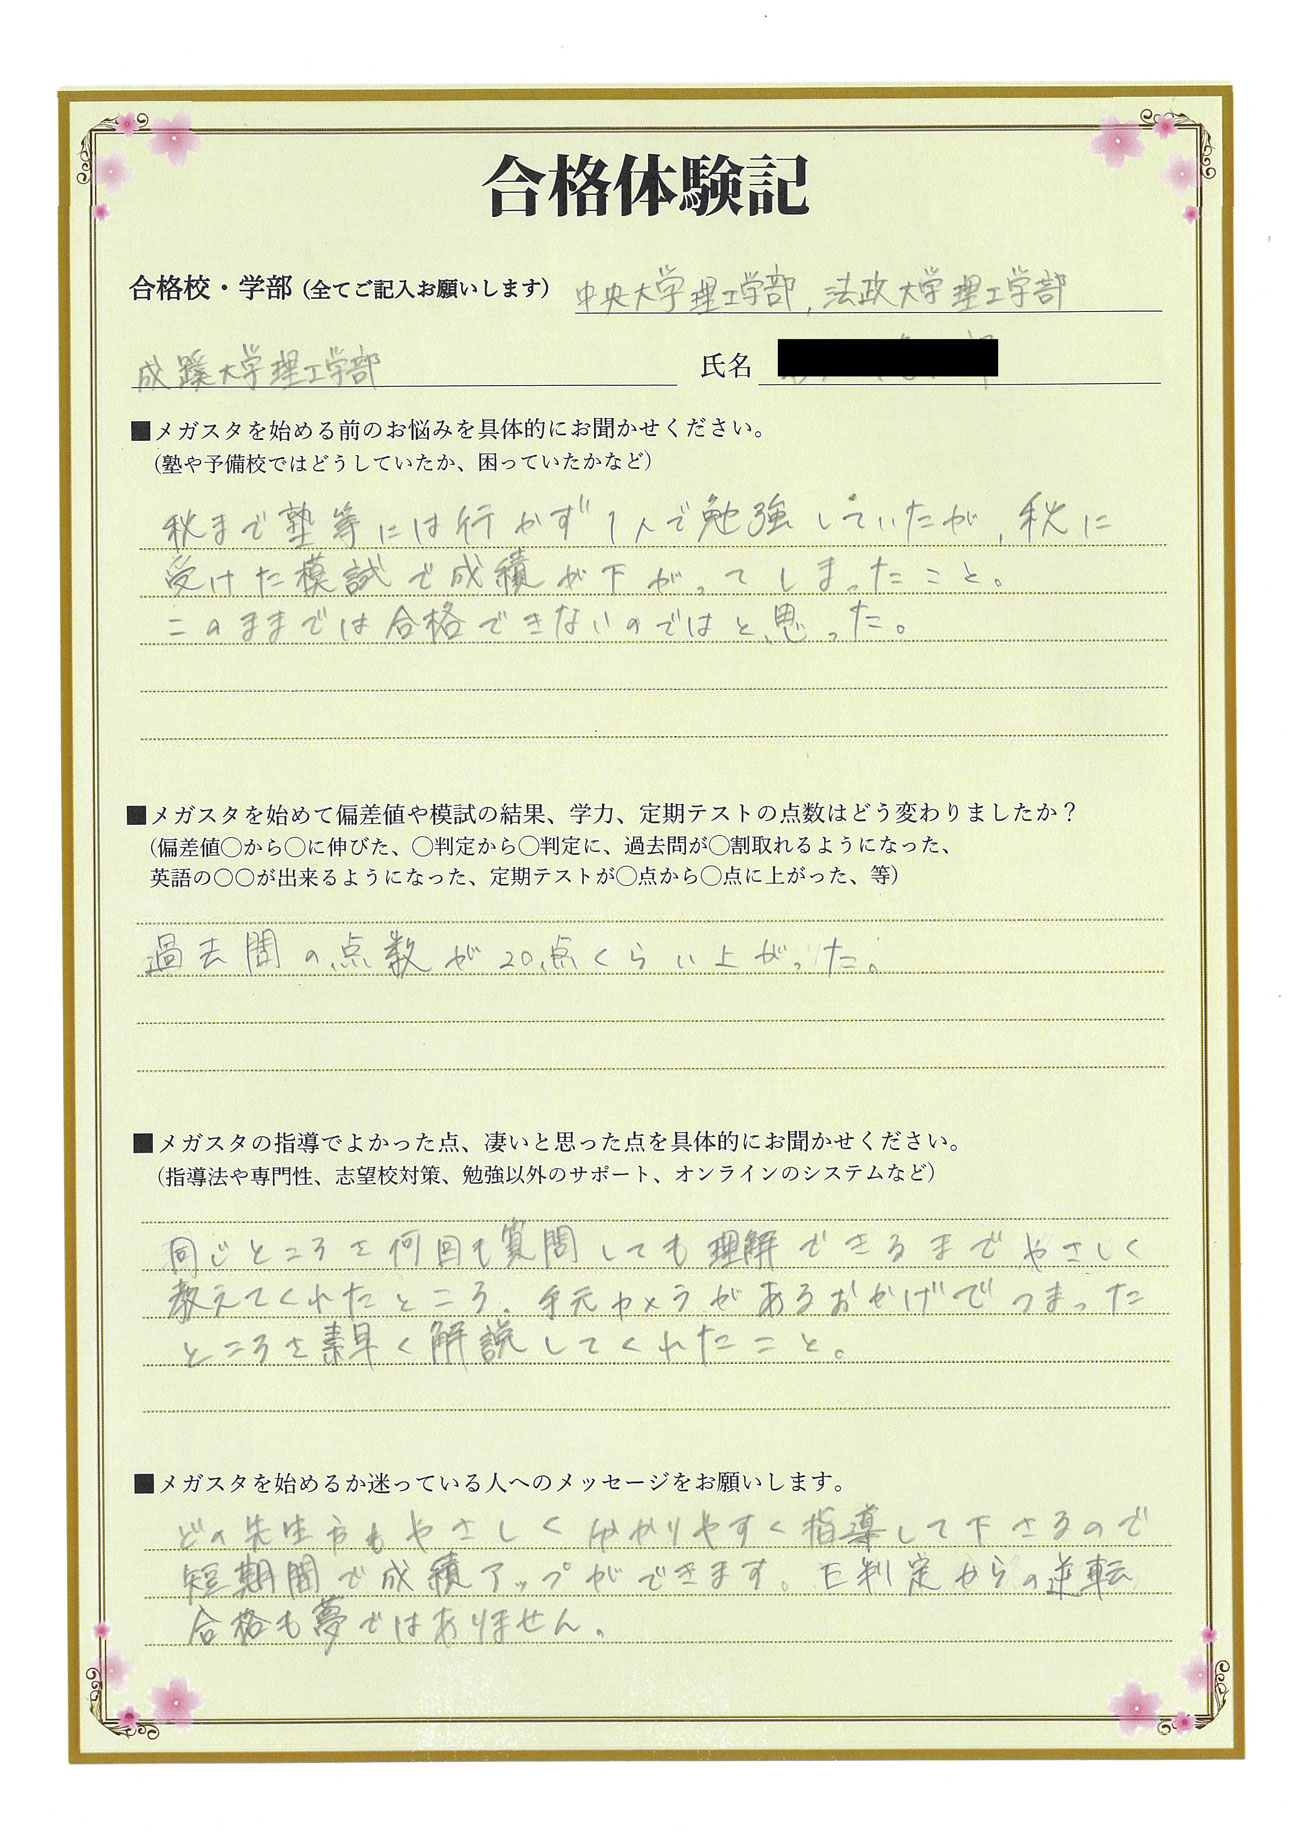 合格体験記
合格校・学部（全てご記入お願いします） 中央大学理工学部, 法政大学理工学部
成蹊大学理工学部 氏名
■メガスタを始める前のお悩みを具体的にお聞かせください。
（塾や予備校ではどうしていたか、困っていたかなど）
秋まで塾等には行かず1人で勉強していたが, 秋に
受けた模試で成績が下がってしまったこと。
このままでは合格できないのではと思った。
■メガスタを始めて偏差値や模試の結果、学力、定期テストの点数はどう変わりましたか？
（偏差値〇から〇に伸びた、〇判定から〇判定に、過去問が〇割取れるようになった、
英語の〇〇が出来るようになった、定期テストが〇点から〇点に上がった、等）
過去問の点数が20点くらい上がった。
■メガスタの指導でよかった点、凄いと思った点を具体的にお聞かせください。
（指導法や専門性、志望校対策、勉強以外のサポート、オンラインのシステムなど）
同じところを何回も質問しても理解できるまでやさしく
教えてくれたところ. 手元カメラがあるおかげでつまった
ところを素早く解説してくれたこと。
■メガスタを始めるか迷っている人へのメッセージをお願いします。
どの先生方もやさしく分かりやすく指導して下さるので
短期間で成績アップができます。E判定からの逆転
合格も夢ではありません。